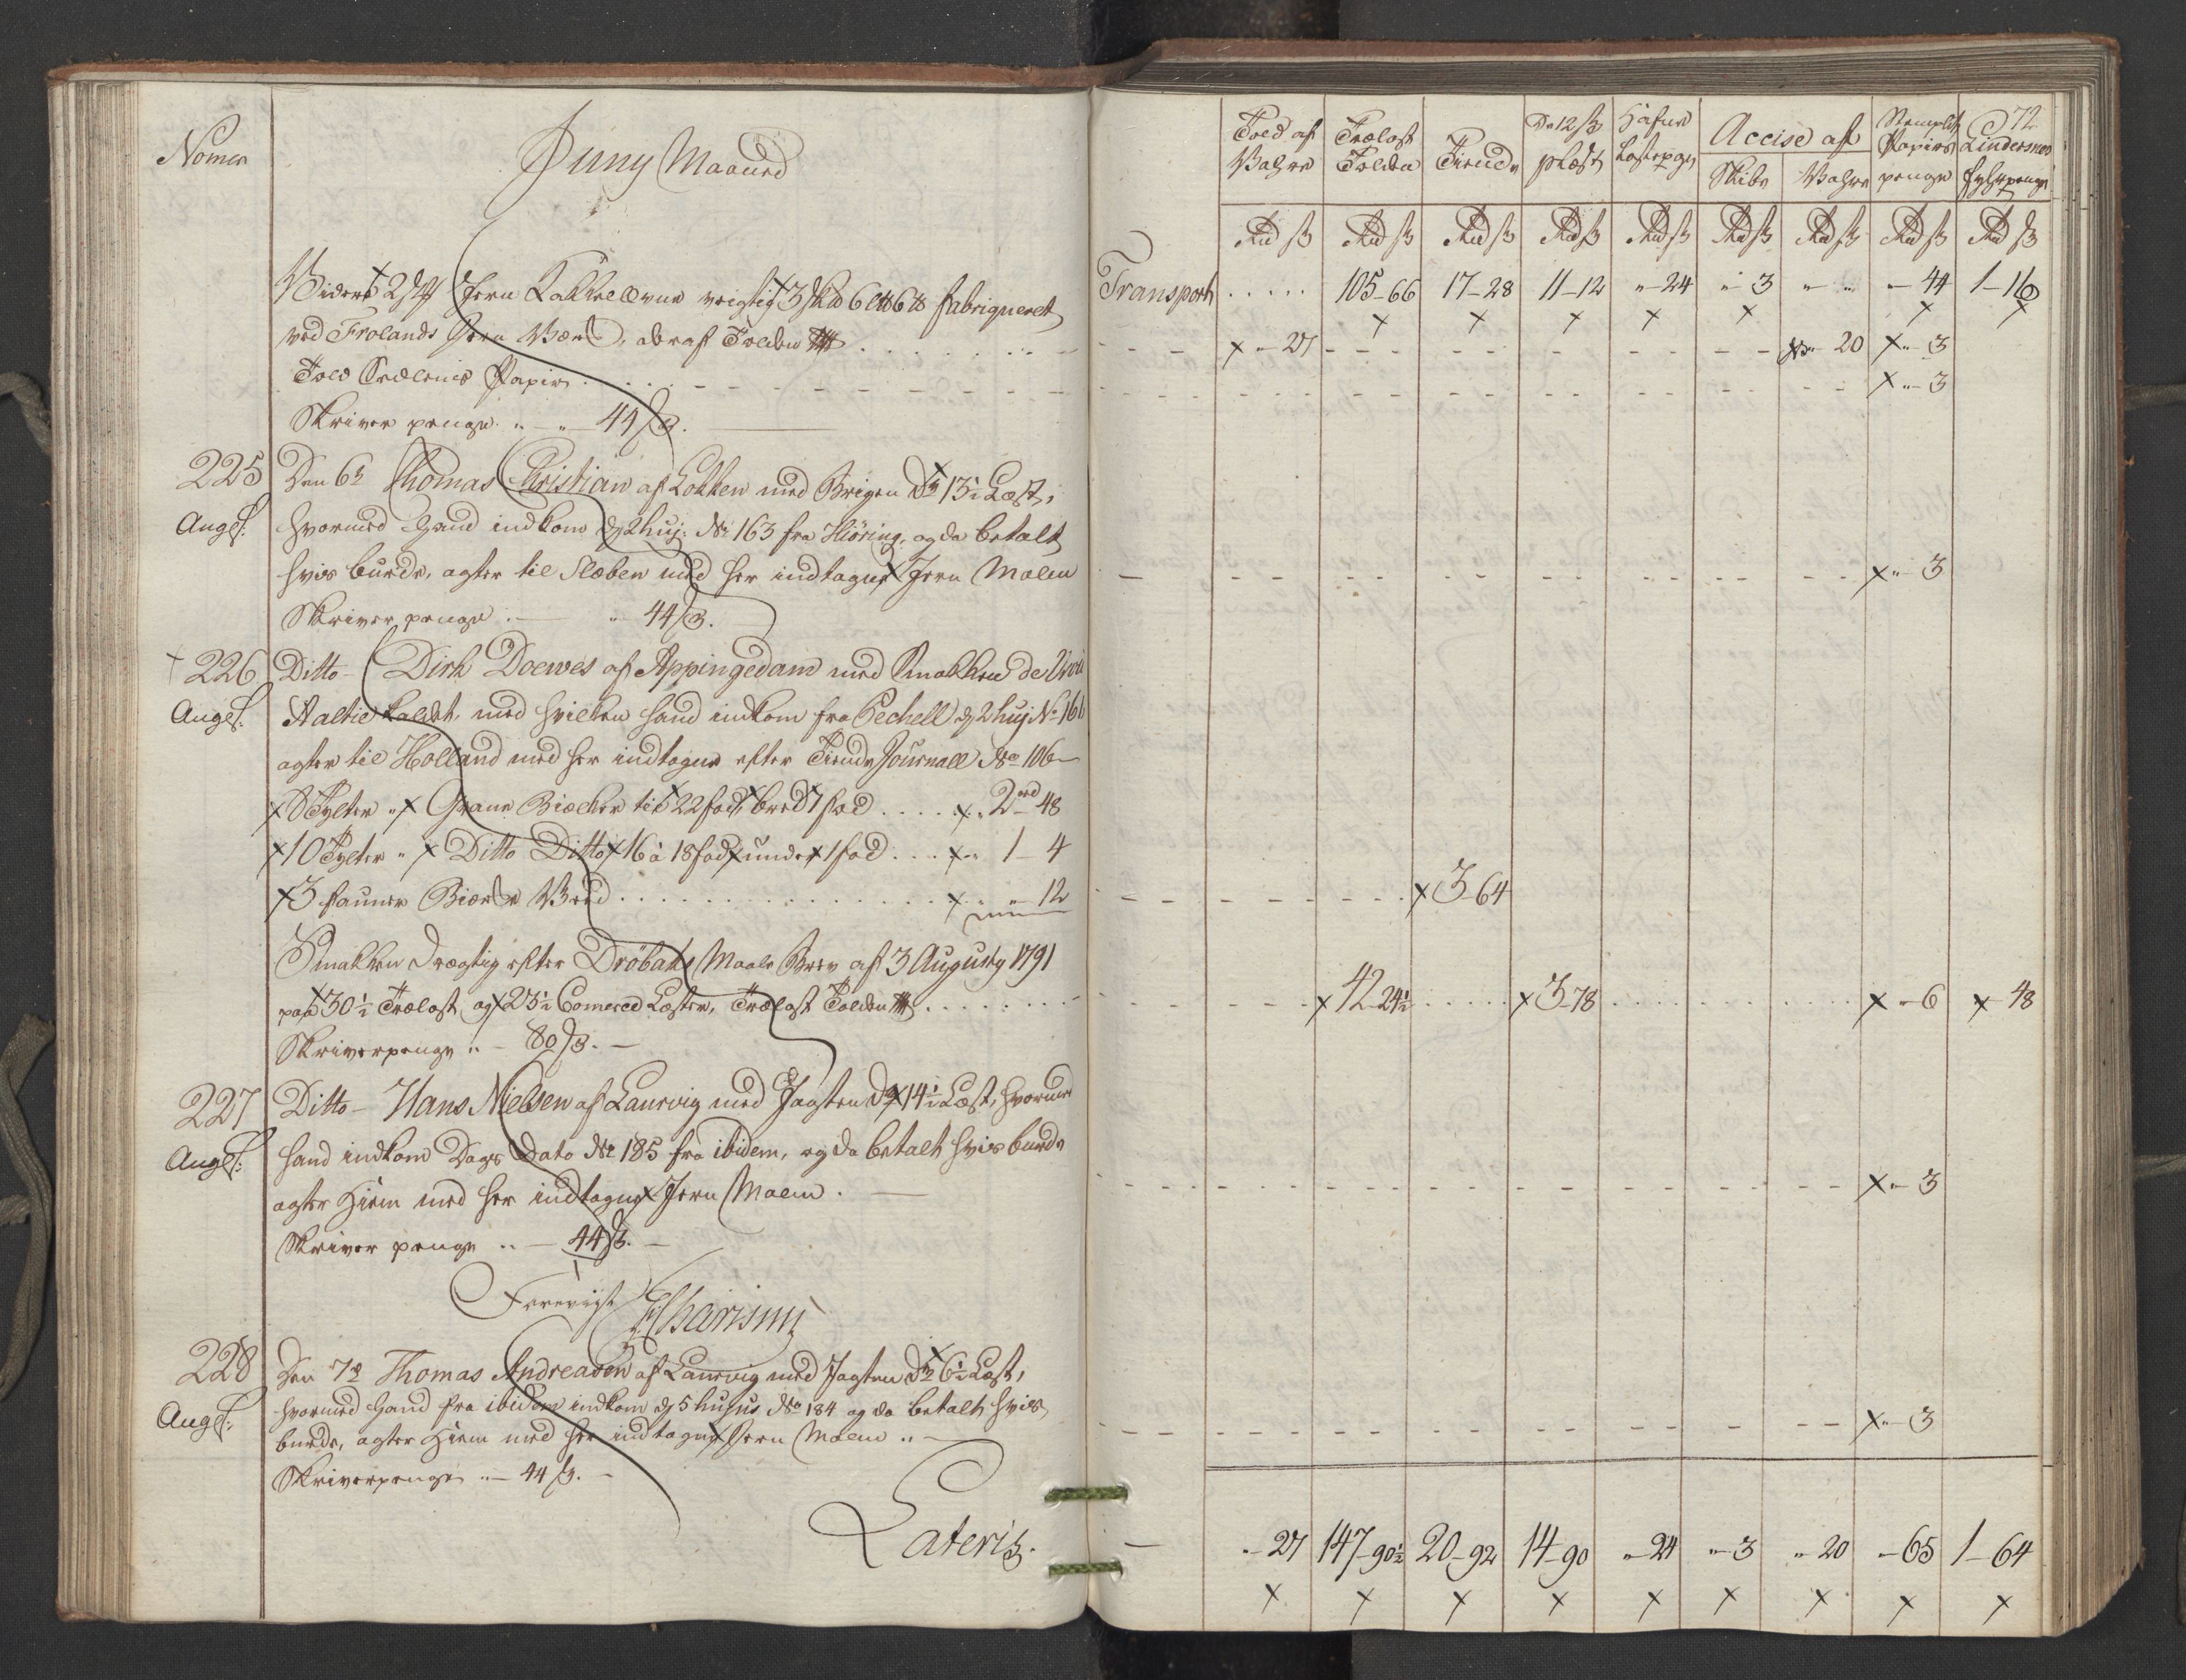 Nomer
Juny Maaned
Videre 2 st Jern Kakkelovne vegtig 3 sk℔ 6 L℔ 6 ℔ fabriqueret
ved Frolands Jern Værk, deraf Tolden
Told Sedlens Papir
Skriver penge " - " - 44 ß.
225
Angl:
Den 6te Thomas Christian af Lokken med Brigen dr 13½ Læst,
hvormed hand indkom d 2 huj: No 163 fra Hiöring, og da betalt
hvis burde, agter til Slæben med her indtagne Jern Malm
Skriver penge " 44 ß.
226
Angl:
Ditto - Dirk Doewes af Appingedam med Smakken de Vrou
Aaltie kaldet, med hvilken hand indkom fra Pechell d 2 huj No 166
agter til Holland med her indtagne efter Tiende Journall No 106
8 Tylter " Grane Biælker til 22 fod, bred 1 fod . . . . 2 rd 48
10 Tylter " Ditto Ditto 16 à 18 fod under 1 fod . . . 1 - 4
3 faune Biærke Ved . . . . " - 12
Smakken drægtig efter Dröbaks Maale Brev af 3 Augusty 1791
paa 30½ Trælast og 23½ Comerce Læster, Trælast Tolden
Skriverpenge " - 80 ß. -
227
Angl:
Ditto - Hans Nielsen af Laurvig med Jagten dr 14½ Læst, hvormed
hand indkom Dags Dato No 185 fra ibidem, og da betalt hvis burde
agter Hiem med her indtagne Jern Malm. -
Skriver penge " - 44 ß. -
Foreviist
228
Angl:
Den 7de Thomas Andreasen af Laurvig med Jagten dr 6½ Læst,
hvormed hand fra ibidem indkom d 5 hujus No 184 og da betalt hvis
burde, agter Hiem med her indtagne Jern Malm " -
Skriverpenge " - 44 ß. -
Lateris.
72
Told af Vahre | Trælast Tolden | Tiende | De 12 ß pLæst | Hafne Lastepge | Accise af Skibe | Vahre | Stemplet Papirs penge | Lindersnes Fyhrpenge
Rd ß | Rd ß | Rd ß | Rd ß | Rd ß | Rd ß | Rd ß | Rd ß | Rd ß
Transport . . . . . 105-66 17-28 11-12 "-24 "-3 " " "-44 1-16
"-27 "-20 "-3
"-3
"-3
3-64
42-24½ 3-78 "-6 "-48
"-3
"-3
"-27 147-90½ 20-92 14-90 "-24 "-3 "-20 "-65 1-64